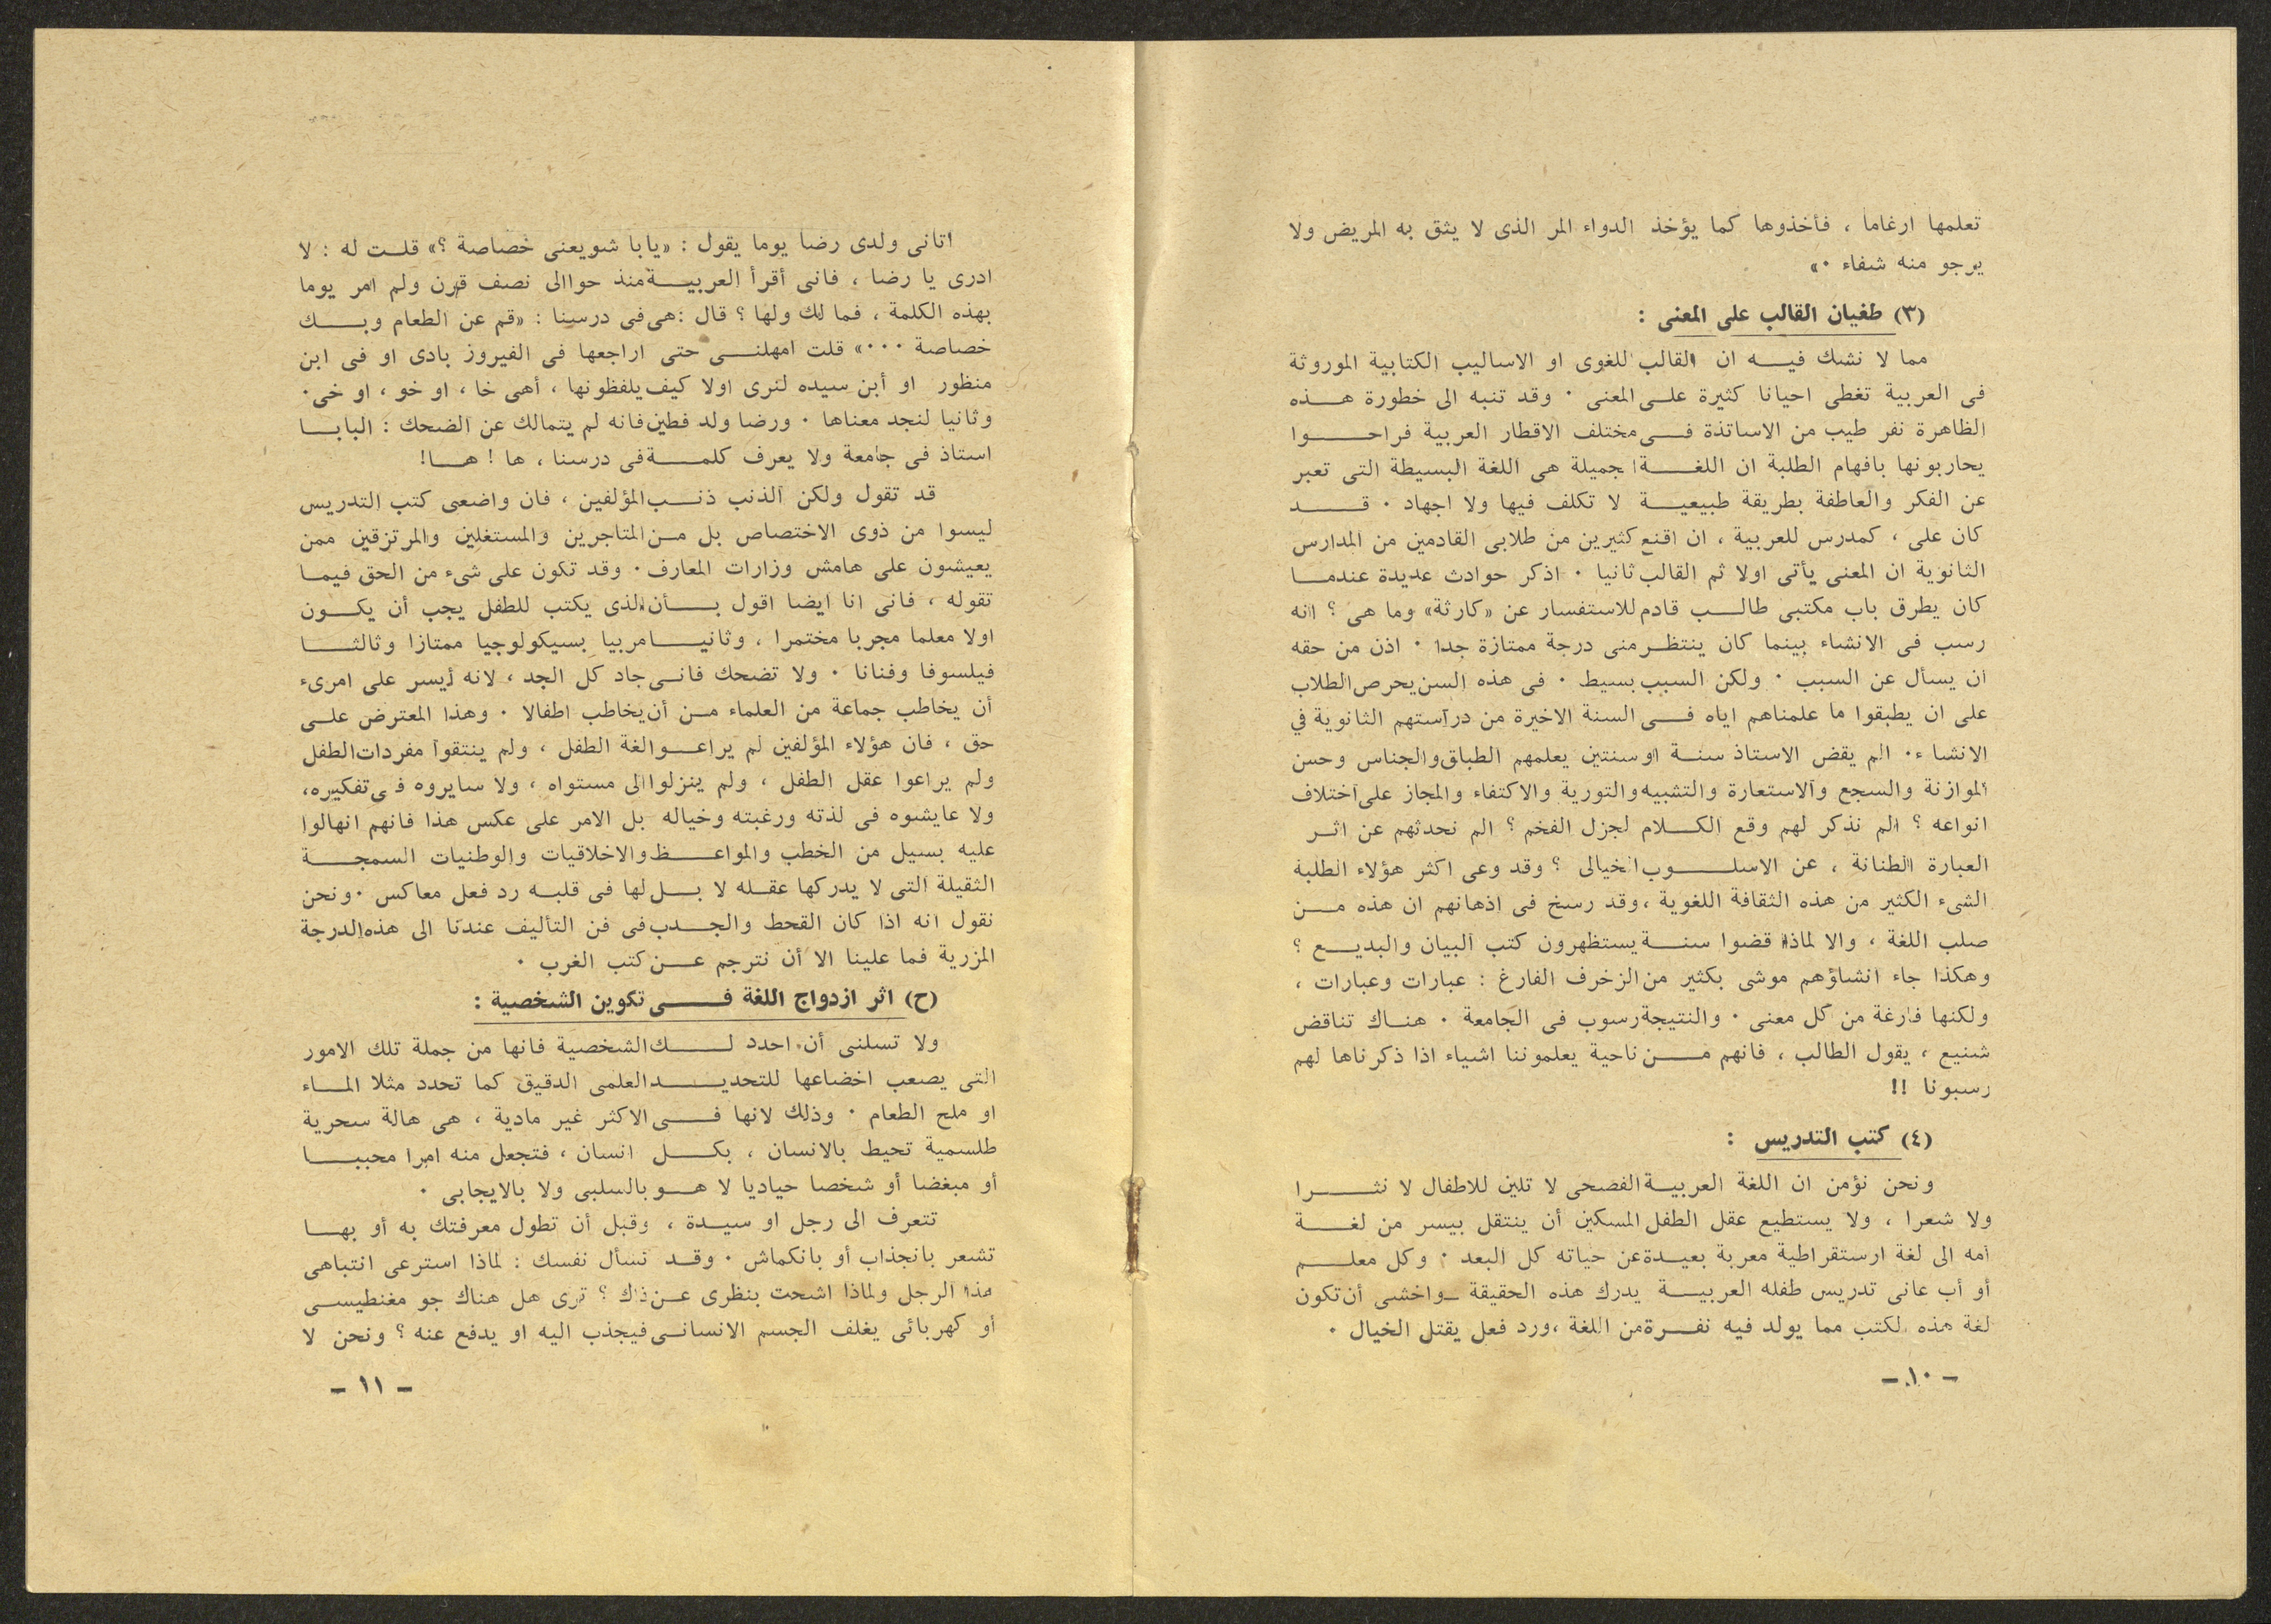 تعلمها ارغاما ، فأخذوها كما يؤخذ الدواء المر الذى لا يثق به المريض ولا
يرجو منه شفاء ٠»
(٣) طغيان القالب على المعنى :
مما لا نشك فيه ان القالب اللغوى او الاساليب الكتابية الموروثة
فى العربية تغطى احيانا كثيرة على المعنى ٠ وقد تنبه الى خطورة هذه
الظاهرة نفر طيب من الاساتذة فى مختلف الاقطار العربية فراحوا
يحاربونها بافهام الطلبة ان اللغة الجميلة هى اللغة البسيطة التى تعبر
عن الفكر والعاطفة بطريقة طبيعية لا تكلف فيها ولا اجهاد ٠ قد
كان على ، كمدرس للعربية ، ان اقنع كثيرين من طلابى القادمين من المدارس
الثانوية ان المعنى يأتى اولا ثم القالب ثانيا ٠ اذكر حوادث عديدة عندما
كان يطرق باب مكتبى طالب قادم للاستفسار عن «كارثة» وما هى ؟ انه
رسب فى الانشاء بينما كان ينتظر منى درجة ممتازة جدا ٠ اذن من حقه
ان يسأل عن السبب ٠ ولكن السبب بسيط ٠ فى هذه السن يحرص الطلاب
على ان يطبقوا ما علمناهم اياه فى السنة الاخيرة من دراستهم الثانوية في
الانشاء ٠ الم يقض الاستاذ سنة او سنتين يعلمهم الطباق والجناس وحسن
الموازنة والسجع والاستعارة والتشبيه والتورية والاكتفاء والمجاز على اختلاف
انواعه ؟ الم نذكر لهم وقع الكلام لجزل الفخم ؟ الم نحدثهم عن اثر
العبارة الطنانة ، عن الاسلوب الخيالى ؟ وقد وعى اكثر هؤلاء الطلبة
الشىء الكثير من هذه الثقافة اللغوية ، وقد رسخ فى اذهانهم ان هذه من
صلب اللغة ، والا لماذا قضوا سنة يستظهرون كتب البيان والبديع ؟
وهكذا جاء انشاؤهم موشى بكثير من الزخرف الفارغ : عبارات وعبارات ،
ولكنها فارغة من كل معنى ٠ والنتيجة رسوب فى الجامعة ٠ هناك تناقض
شنيع ، يقول الطالب ، فانهم من ناحية يعلموننا اشياء اذا ذكرناها لهم
رسبونا !!
(٤) كتب التدريس :
ونحن نؤمن ان اللغة العربية الفصحى لا تلين للاطفال لا نثرا
ولا شعرا ، ولا يستطيع عقل الطفل المسكين أن ينتقل بيسر من لغة
امه الى لغة ارستقراطية معربة بعيدة عن حياته كل البعد ٠ وكل معلم
أو أب عانى تدريس طفله العربية يدرك هذه الحقيقة ـ واخشى أن تكون
لغة هذه لكتب مما يولد فيه نفرة من اللغة ، ورد فعل يقتل الخيال ٠
ـ ١٠ ـ
اتانى ولدى رضا يوما يقول : «يابا شويعنى خصاصة ؟» قلت له : لا
ادرى يا رضا ، فانى أقرأ العربية منذ حوالى نصف قرن ولم امر يوما
بهذه الكلمة ، فما لك ولها ؟ قال : هى فى درسنا : «قم عن الطعام وبك
خصاصة ٠٠٠» قلت امهلنى حتى اراجعها فى الفيروز بادى او فى ابن
منظور او أبن سيده لنرى اولا كيف يلفظونها ، أهى خا ، او خو ، او خى ٠
وثانيا لنجد معناها ٠ ورضا ولد فطين فانه لم يتمالك عن الضحك : البابا
استاذ فى جامعة ولا يعرف كلمة فى درسنا ، ها ! ها!
قد تقول ولكن الذنب ذنب المؤلفين ، فان واضعى كتب التدريس
ليسوا من ذوى الاختصاص بل من المتاجرين والمستغلين والمرتزقين ممن
يعيشون على هامش وزارات المعارف ٠ وقد تكون على شىء من الحق فيما
تقوله ، فانى انا ايضا اقول بأن الذى يكتب للطفل يجب أن يكون
اولا معلما مجربا مختمرا ، وثانيا مربيا بسيكولوجيا ممتازا وثالثا
فيلسوفا وفنانا ٠ ولا تضحك فانى جاد كل الجد ، لانه أيسر على امرىء
أن يخاطب جماعة من العلماء من أن يخاطب اطفالا ٠ وهذا المعترض على
حق ، فان هؤلاء المؤلفين لم يراعوا لغة الطفل ، ولم ينتقوا مفردات الطفل
ولم يراعوا عقل الطفل ، ولم ينزلوا الى مستواه ، ولا سايروه فى تفكيره ،
ولا عايشوه فى لذته ورغبته وخياله بل الامر على عكس هذا فانهم انهالوا
عليه بسيل من الخطب والمواعظ والاخلاقيات والوطنيات السمجة
الثقيلة التى لا يدركها عقله لا بل لها فى قلبه رد فعل معاكس ٠ ونحن
نقول انه اذا كان القحط والجدب فى فن التأليف عندنا الى هذه الدرجة
المزرية فما علينا الا أن نترجم عن كتب الغرب ٠
(ح) اثر ازدواج اللغة فى تكوين الشخصية :
ولا تسلنى أن احدد لك الشخصية فانها من جملة تلك الامور
التى يصعب اخضاعها للتحديد العلمى الدقيق كما تحدد مثلا الماء
او ملح الطعام ٠ وذلك لانها فى الاكثر غير مادية ، هى هالة سحرية
طلسمية تحيط بالانسان ، بكل انسان ، فتجعل منه امرا محببا
أو مبغضا أو شخصا حياديا لا هو بالسلبى ولا بالايجابى ٠
تتعرف الى رجل او سيدة ، وقبل أن تطول معرفتك به أو بها
تشعر بانجذاب أو بانكماش ٠ وقد تسأل نفسك : لماذا استرعى انتباهى
هذا الرجل ولماذا اشحت بنظرى عن ذاك ؟ ترى هل هناك جو مغنطيسى
أو كهربائى يغلف الجسم الانسانى فيجذب اليه او يدفع عنه ؟ ونحن لا
ـ ١١ ـ